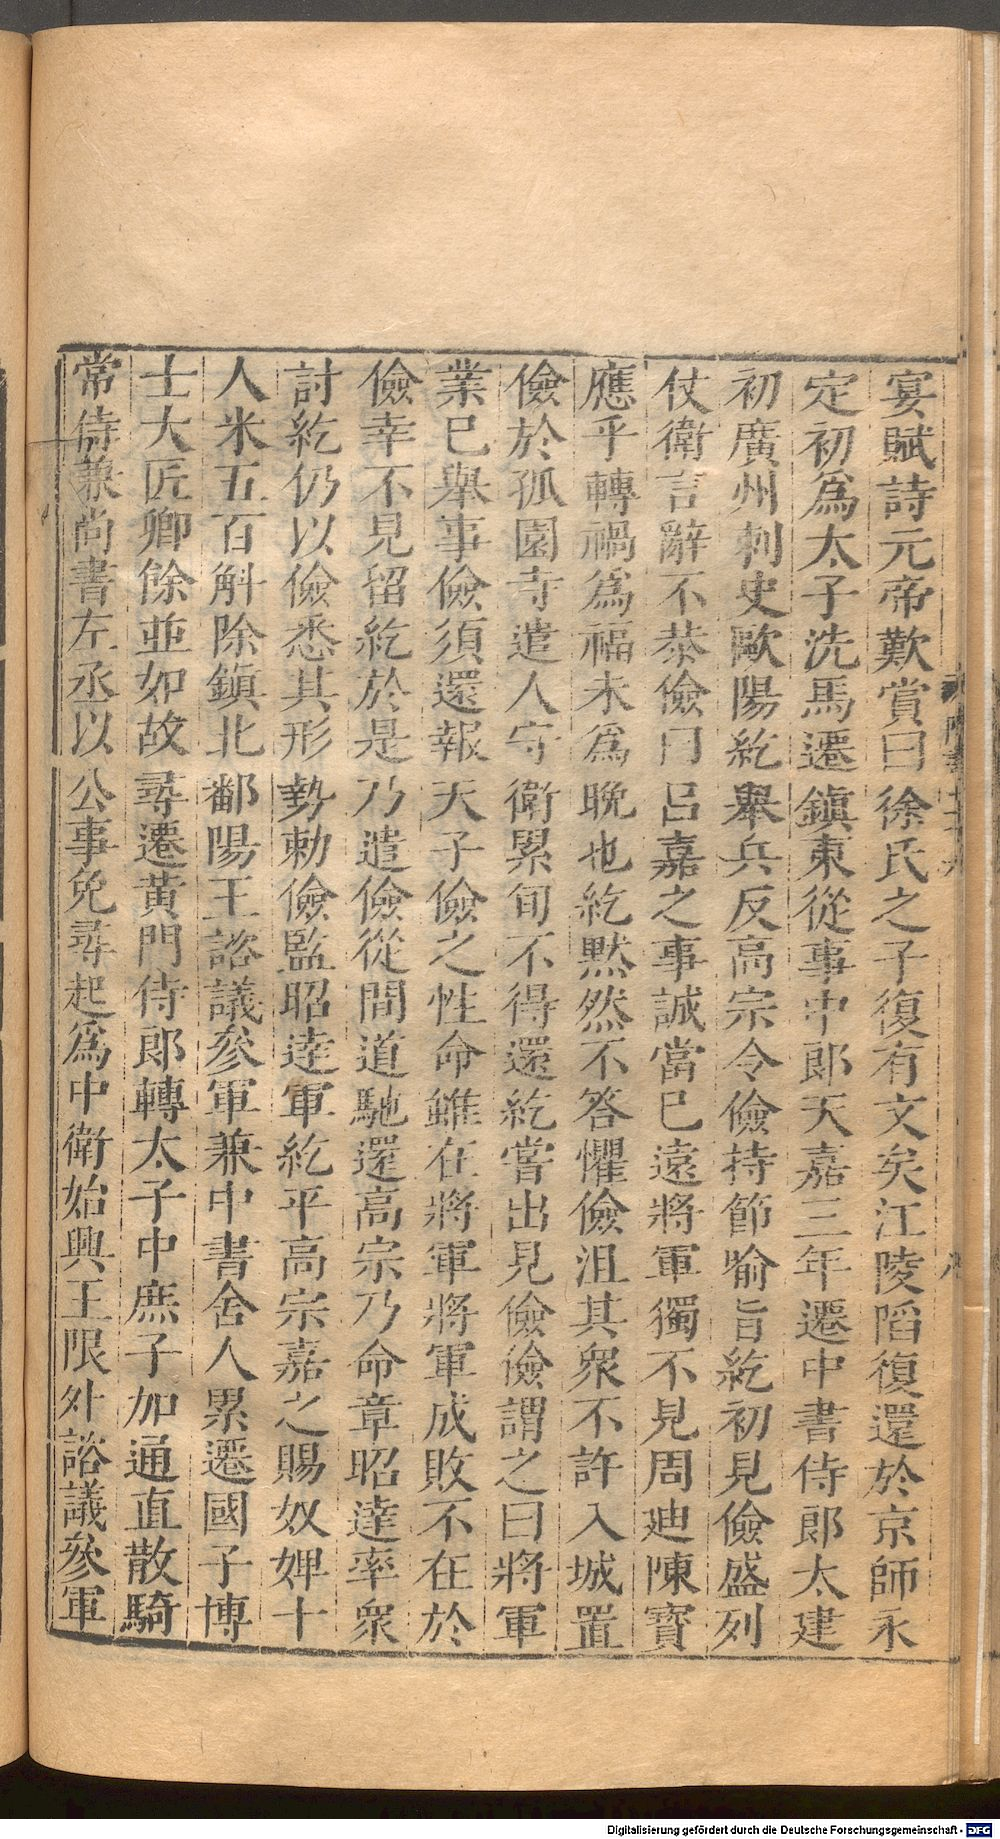 宴賦詩元帝歎賞曰徐氏之子復有文矣江陵䧟復還於京師永
定初爲太子洗馬遷鎭東從事中郎天嘉三年遷中書侍郎太建
初廣州刺史歐陽紇舉兵反高宗令儉持節喻旨紇初見儉盛列
仗衛言辭不恭儉曰呂嘉之事誠當巳遠將軍獨不見周迪陳寶
應乎轉禍爲福未爲晚也紇黙然不答懼儉沮其衆不許入城置
儉於孤園寺遣人守衛累旬不得還紇嘗出見儉儉謂之曰將軍
業巳舉事儉須還報天子儉之性命雖在將軍將軍成敗不在於
儉幸不見留紇於是乃遣儉從間道馳還高宗乃命章昭達率衆
討紇仍以儉悉其形勢勅儉監昭達軍紇平高宗嘉之賜奴婢十
人米五百斛除鎭北鄱陽王諮議參軍兼中書舍人累遷國子博
士大匠卿餘並如故尋遷黄門侍郎轉太子中庶子加通直散騎
常侍兼尚書左丞以公事免尋起爲中衛始興王限外諮議參軍
Digitalisierung gefördert durch die Deutsche Forschungsgemeinschaft - DFG